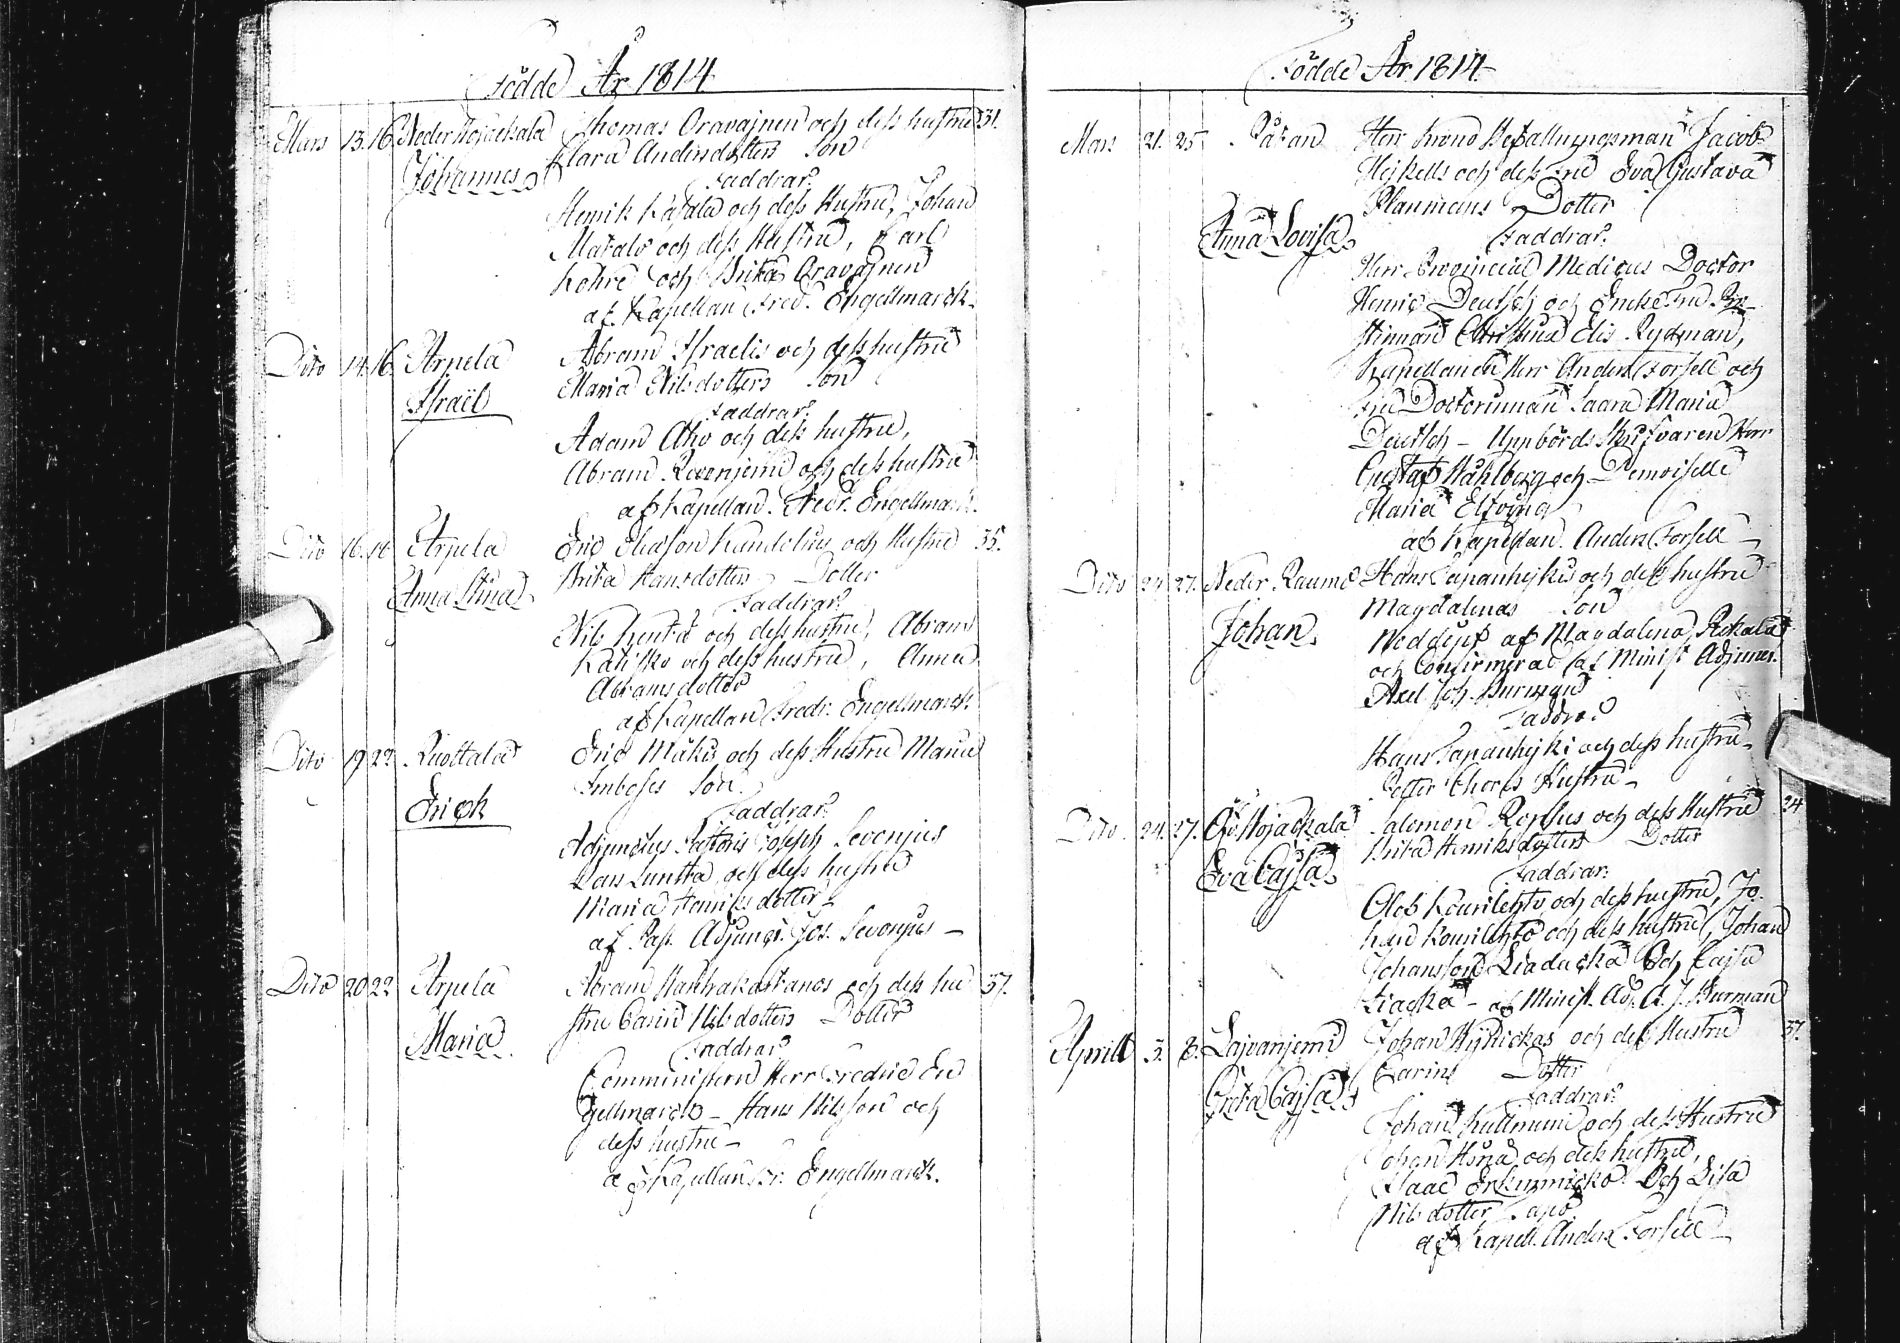 Födde År 1814
Mars 13. 16. Neder Wojackala Thomas Oravajnen och dess hustru 31.
Johannes Klara Andersdotters Son
Faddrar.
Henrik Katala och dess Hustru, Johan
Matalo och dess Hustru, Carl
Kohre och Brita Oravajnen
af Kapellan Fred. Engellmarck.
Dito 14. 16. Arpela Abram Israelis och dess hustru
Israël Maria Nilsdotters Son
Faddrar.
Adam Aho och dess hustru,
Abram och dess hustru
af Kapellan. Fredr. Engellmarck.
Dito 16. 16 Arpela Eric Eliason Kandelius och Hustru 35.
Anna Stina Brita Hansdotters Dotter
Faddrar.
Nils och dess hustru, Abram
och dess hustru, Anna
Abramsdotter
af Kapellan Fredr. Engellmarck.
Dito 19 22. Ruottala Eric Mäkis och dess Hustru Maria
Erick Son.
Faddrar.
Adjunctus Pastoris Joseph Sevonjus
Lars och dess hustru
Maria Henriks dotter
af Past. Adjunct. Jos. Sevonjus –
Dito 20 22 Arpela Abram och dess hu 37.
stru Carin Nilsdotters Dotter
Maria.
Faddrar
Comministern Herr Fredric En
gellmarck – Hans Nilsson och
dess hustru –
af Kapellan Fr. Engellmarck.
Födde År 1814
Mars 21. 25. Räfan Herr Befallningsman Jacob
Hejkells och dess Fru Eva Gustava
Planmans Dotter
Anna Lovisa Faddrar.
Herr Provincial Medicus Doctor
Henric Deutsch och Encke Fru Pro-
stinnan Christina Elis. Rydman,
Kapellanen Herr Anders Forsell och
Fru Doctorinnan Saara Maria
Deutsch – Uppbörds Skrifvaren Herr
Gustaf Wahlberg och Demoiselle
Maria Elfving
af Kapellan. Anders Forsell –
Dito 24 27. Neder Raumo Hans Tapanhejkis och dess hustru
Magdalenas Son
Johan. Nöddöpt af Magdalena Rekala
och Confirmerad af Minist. Adjunct.
Axel Joh. Burman
Faddrar
Hans Tapanhejki och dess hustru –
Petter Hustru –
Dito 24. 27. Öf. Wojackala Salomon och dess Hustru 24
Brita Henriksdotters Dotter
Eva Cajsa Faddrar.
Olof Kourilehto och dess hustru, Jo-
han Kourilehto och dess hustru, Johan
Johansson och Cajsa
Liacka – af Minist. Adj. A. J. Burman
Aprill 3. 8. Lajvanjemi Johan och dess Hustru 37.
Carins Dotter
Greta Cajsa Faddrar.
Johan och dess Hustru
Johan och dess hustru,
Isaac och Lisa
Nilsdotter
af Kapell. Anders Forsell –